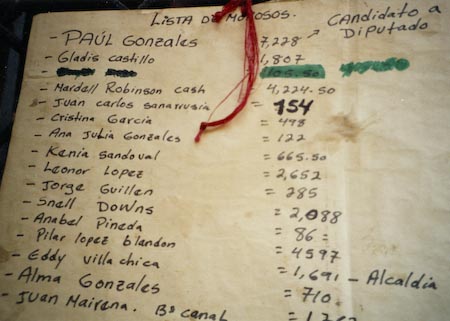 LISTA DE MOROSOS. CANDIDATO A
- PAÚL Gonzales 7,228 ↗ DIPUTADO
- Gladis castillo 1,807
- 105.50
- Mardell Robinson cash 4,224.50
- Juan carlos sanarrusia = 154
- Cristina García = 498
- Ana Julia Gonzales = 122
- Kenia sandoval = 665.50
- Leonor Lopez = 2,652
- Jorge Guillen = 285
- Snell Downs = 2,088
- Anabel Pineda = 86 =
- Pilar lopez blandon = 4597
- Eddy villachica = 1,691 - Alcaldia
- Alma Gonzales = 710.
- Juan Mairena. Bº canal